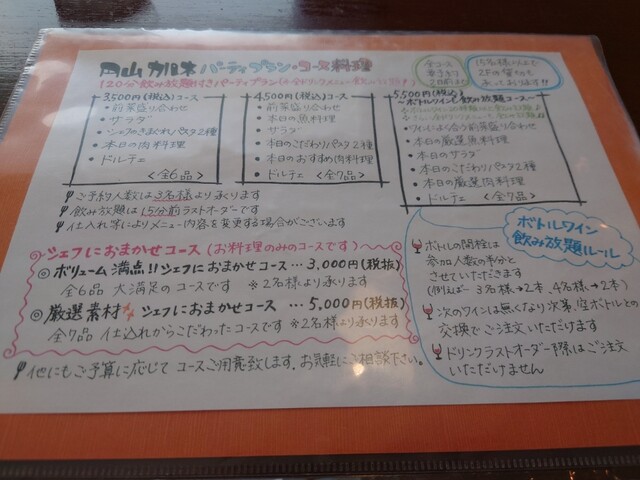 円山 パーティプラン・コース料理
120分飲み放題付きパーティプラン
全コース
15名様以上で
2Fの貸切も
3,500円(税込)コース
・前菜盛り合わせ
・サラダ
・シェフのきまぐれパスタ2種
・本日の肉料理
・ドルチェ <全6品>
4,500円(税込)コース
・前菜盛り合わせ
・本日の魚料理
・サラダ
・本日のこだわりパスタ2種
・本日のおすすめ肉料理
・ドルチェ <全7品>
5,500円(税込)
~ボトルワインも飲み放題コース~
・ワインによく合う前菜盛り合わせ
・本日の厳選魚料理
・本日のサラダ
・本日のこだわりパスタ2種
・本日の厳選肉料理
・ドルチェ <全7品>
ご予約人数は3名様より承ります
飲み放題は15分前ラストオーダーです
仕入れ等によりメニュー内容を変更する場合がございます
シェフにおまかせコース (お料理のみのコースです)
◎ボリューム満点!!シェフにおまかせコース…3,000円(税抜)
全6品 大満足のコースです ※2名様より承ります
◎厳選素材なシェフにおまかせコース …5,000円(税抜)
全7品 仕込れからこだわったコースです ※2名様より承ります
他にもご予算に応じて コースご用意致します。お気軽にご相談下さい。
ボトルワイン
飲み放題ルール
ボトルの開栓は
参加人数の半分と
させていただきます
(例えば… 3名様→2本、4名様→2本)
次のワインは無くなり次第、空ボトルとの
交換でご注文いただけます
ドリンクラストオーダー際はご注文
いただけません